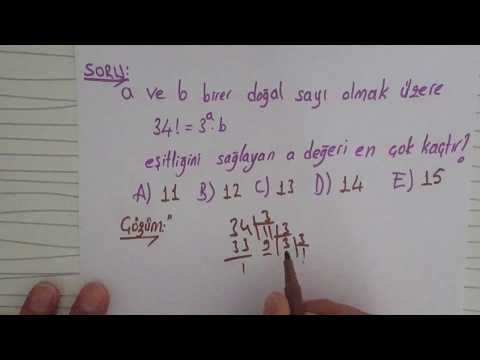 SORU:
a ve b birer doğal sayı olmak üzere
34! = 3^a · b
eşitliğini sağlayan a değeri en çok kaçtır?
A) 11 B) 12 C) 13 D) 14 E) 15
Çözüm:
34 | 3
33 11 | 3
1 9 3 | 3
1